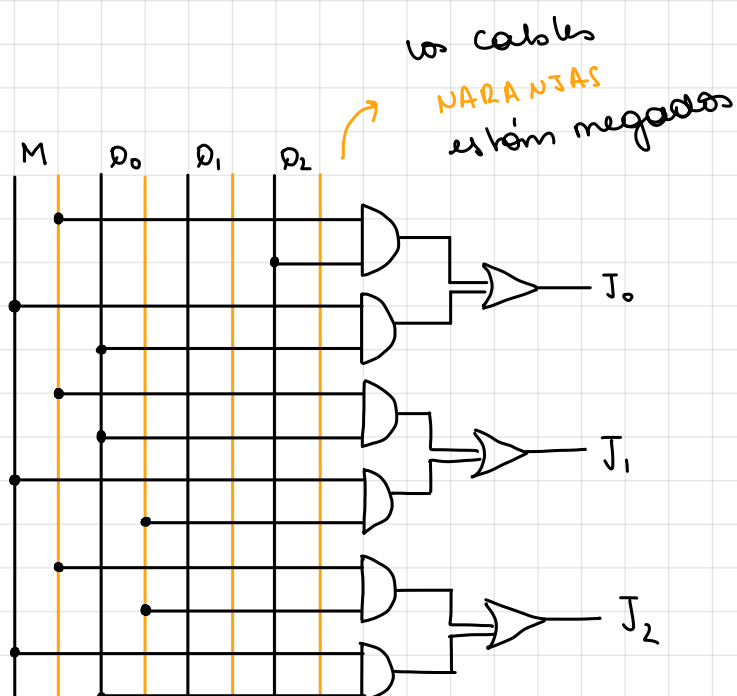 los cables
NARANJAS
están negados
M D₀ D₁ D₂
J₀
J₁
J₂